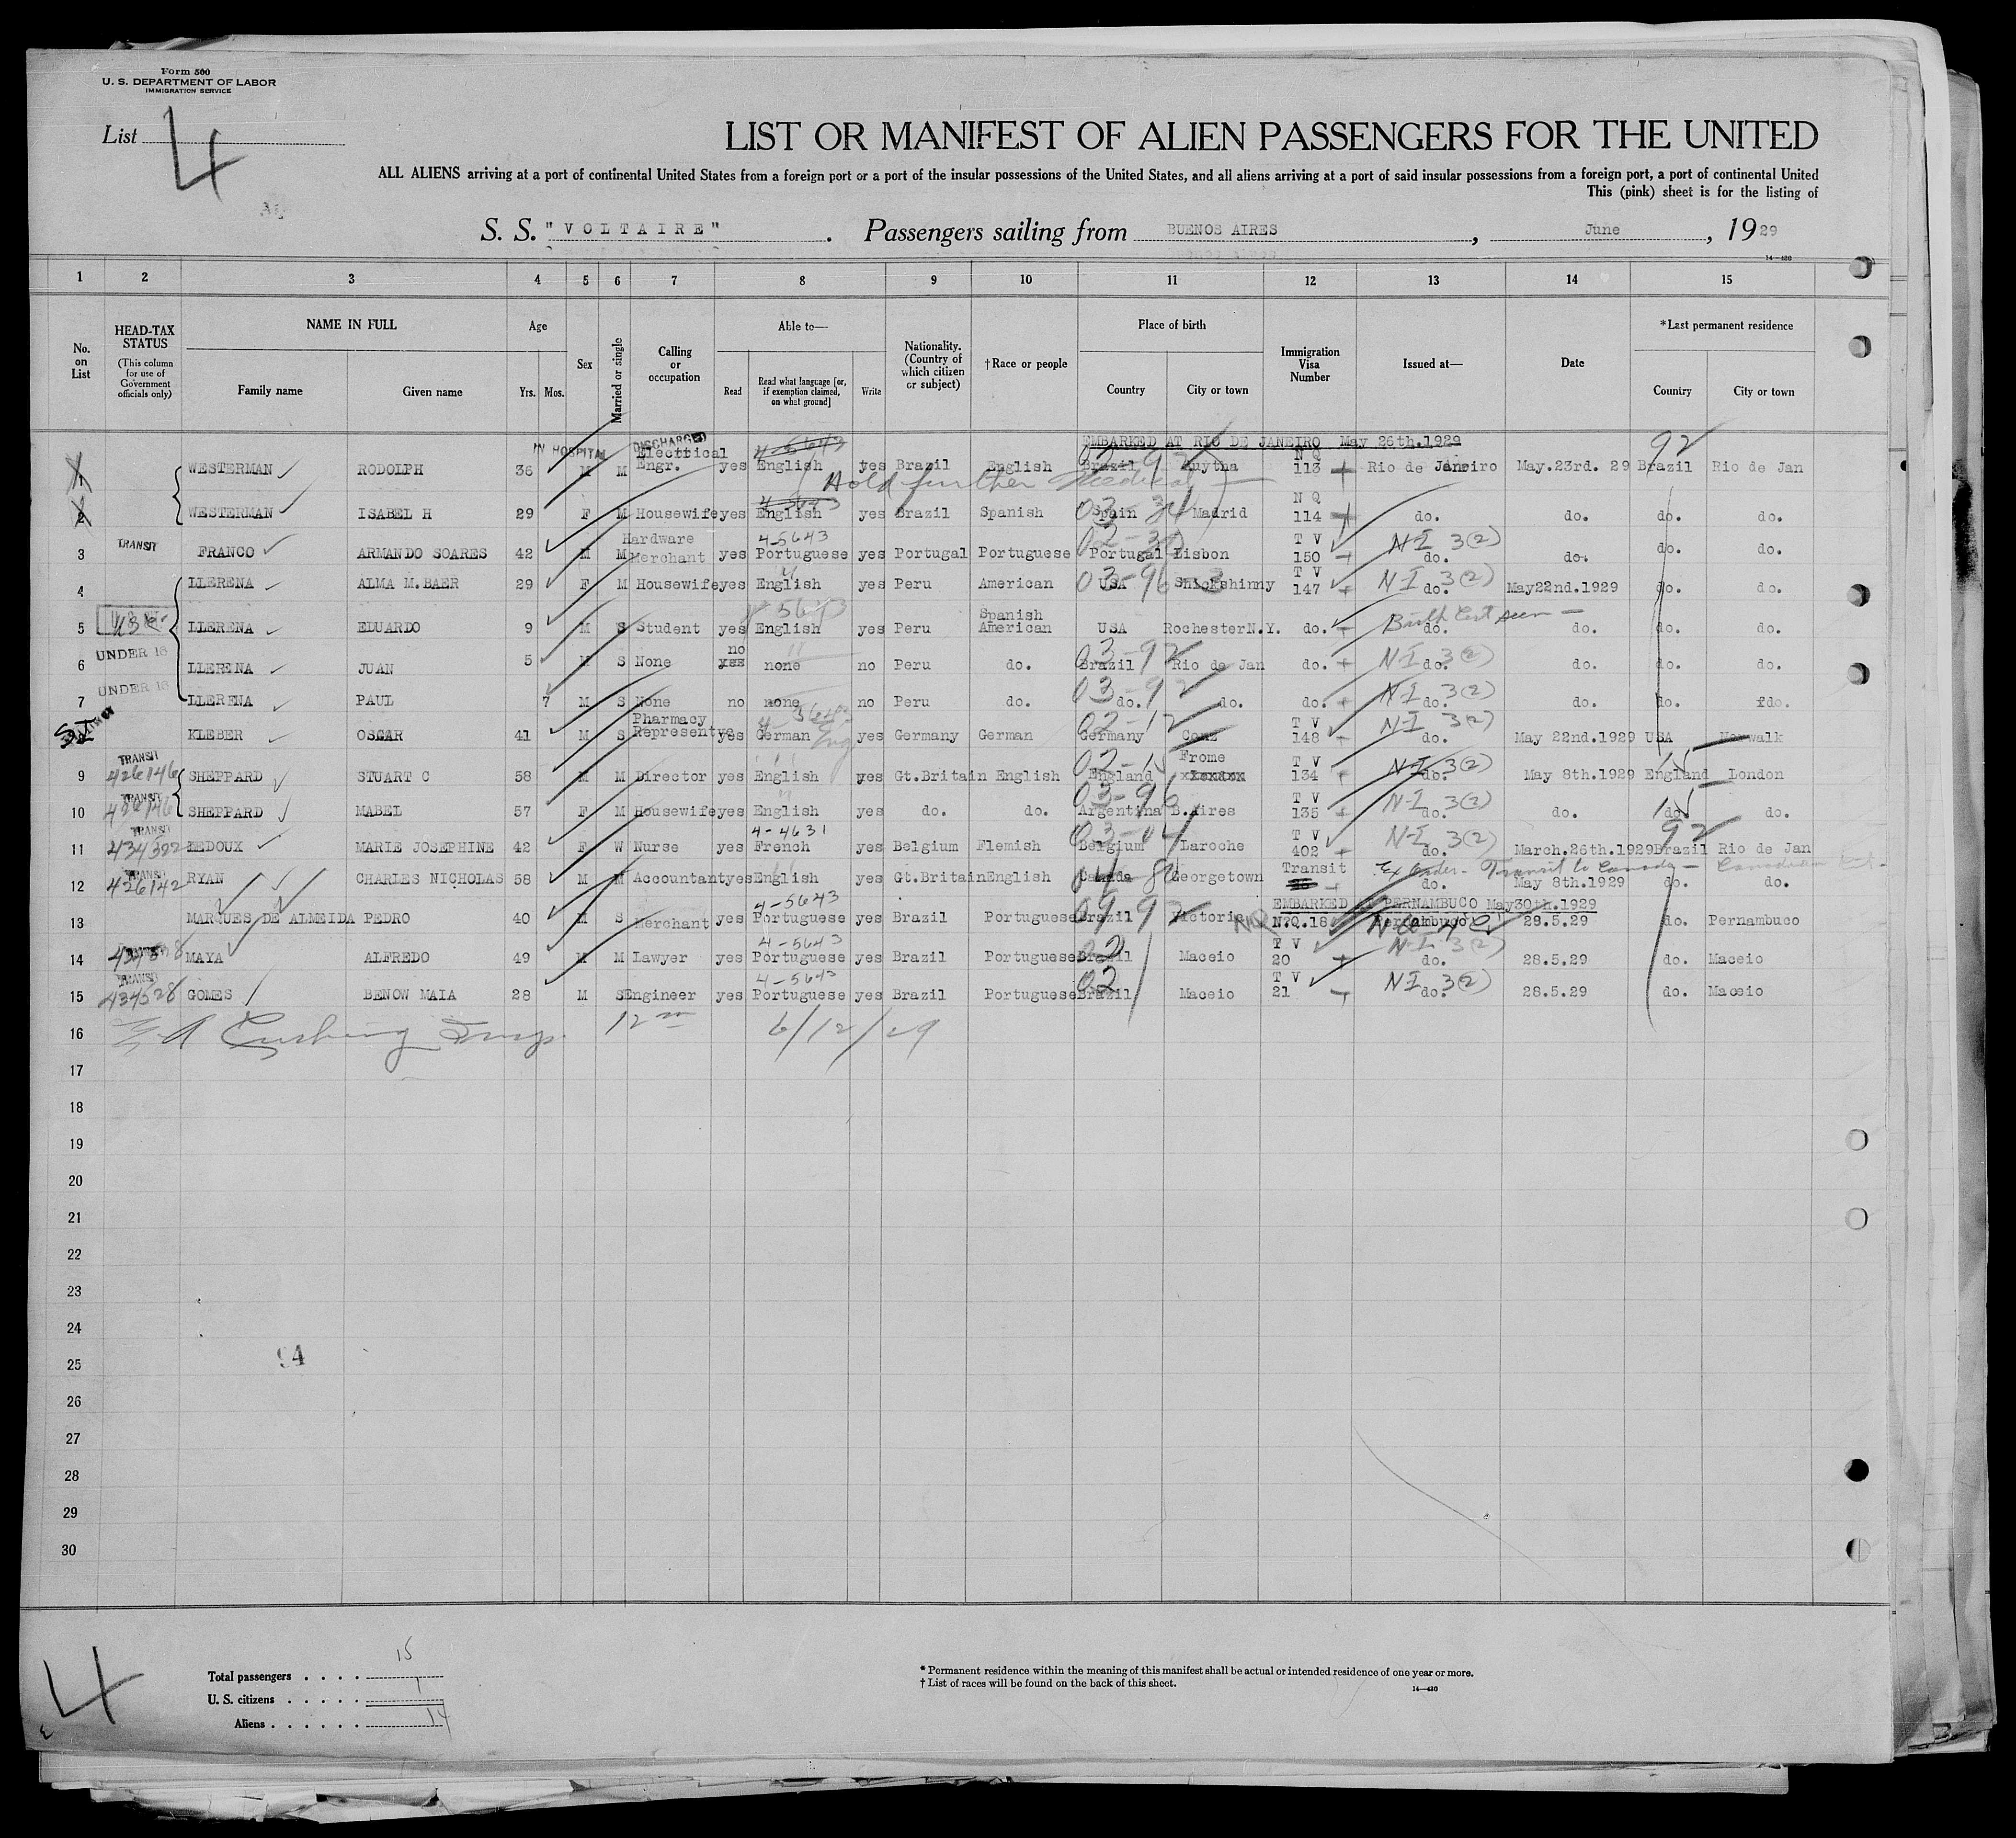 Form 500
U. S. DEPARTMENT OF LABOR
IMMIGRATION SERVICE
List 4
LIST OR MANIFEST OF ALIEN PASSENGERS FOR THE UNITED
ALL ALIENS arriving at a port of continental United States from a foreign port or a port of the insular possessions of the United States, and all aliens arriving at a port of said insular possessions from a foreign port, a port of continental United
This (pink) sheet is for the listing of
S. S. "VOLTAIRE". Passengers sailing from BUENOS AIRES, June, 1929
14—430
1 2 3 4 5 6 7 8 9 10 11 12 13 14 15
No. on List
HEAD-TAX STATUS (This column for use of Government officials only)
NAME IN FULL Family name Given name
Age Yrs. Mos.
Sex
Married or single
Calling or occupation
Able to— Read Read what language [or, if exemption claimed, on what ground] Write
Nationality. (Country of which citizen or subject)
†Race or people
Place of birth Country City or town
Immigration Visa Number
Issued at—
Date
*Last permanent residence Country City or town
IN HOSPITAL DISCHARGED 4-5643 EMBARKED AT RIO DE JANEIRO May 26th.1929 92
1 WESTERMAN RODOLPH 36 M M Electrical Engr. yes English yes Brazil English Brazil NQ 113 Rio de Janeiro May.23rd. 29 Brazil Rio de Jan
Hold further Medical
2 WESTERMAN ISABEL H 29 F M Housewife yes English yes Brazil Spanish Spain Madrid NQ 114 do. do. do. do.
3 TRANSIT FRANCO ARMANDO SOARES 42 M M Hardware Merchant yes 4-5643 Portuguese yes Portugal Portuguese Portugal Lisbon TV 150 do. N-I 3(2) do. do. do.
4 LLERENA ALMA M.BAER 29 F M Housewife yes English yes Peru American 03-96 USA Shickshinny TV 147 do. N-I 3(2) May22nd.1929 do. do.
5 LLERENA EDUARDO 9 M S Student yes English yes Peru Spanish American USA Rochester N.Y. do. do. Birth Cert seen do. do. do.
6 UNDER 16 LLERENA JUAN 5 M S None no yes none no Peru do. 03-92 Brazil Rio de Jan do. do. N-I 3(2) do. do. do.
7 UNDER 16 LLERENA PAUL 7 M S None no none no Peru do. 03-92 do. do. do. do. N-I 3(2) do. do. do.
KLEBER OSCAR 41 M S Pharmacy Representve yes German yes Germany German 02-12 Germany TV 148 do. N-I 3(2) May 22nd.1929 USA Norwalk
9 TRANSIT 426146 SHEPPARD STUART C 58 M M Director yes English yes Gt.Britain English 02-15 England Frome xLondon TV 134 do. N-I 3(2) May 8th.1929 England London
10 TRANSIT 426146 SHEPPARD MABEL 57 F M Housewife yes English yes do. do. 03-96 Argentina B.Aires TV 135 do. N-I 3(2) do. do. do.
11 TRANSIT 434522 LEDOUX MARIE JOSEPHINE 42 F W Nurse yes 4-4631 French yes Belgium Flemish Belgium Laroche TV 402 do. N-I 3(2) March.26th.1929 92 Brazil Rio de Jan
12 TRANSIT 426142 RYAN CHARLES NICHOLAS 58 M M Accountant yes English yes Gt.Britain English Canada Georgetown Transit do. Transit to Canada May 8th.1929 do. do.
EMBARKED AT PERNAMBUCO May30th.1929
13 MARQUES DE ALMEIDA PEDRO 40 M S Merchant yes 4-5643 Portuguese yes Brazil Portuguese Brazil Victoria NQ N.Q.18 Pernambuco 28.5.29 do. Pernambuco
14 MAYA ALFREDO 49 M M Lawyer yes 4-5643 Portuguese yes Brazil Portuguese 02 Brazil Maceio TV 20 do. N-I 3(2) 28.5.29 do. Maceio
15 TRANSIT 434528 GOMES BENOW MAIA 28 M S Engineer yes 4-5643 Portuguese yes Brazil Portuguese 02 Brazil Maceio TV 21 do. N-I 3(2) 28.5.29 do. Maceio
16 Cushing Insp. 12 6/12/29
17
18
19
20
21
22
23
24
94
25
26
27
28
29
30
4
Total passengers 15
U. S. citizens 1
Aliens 14
* Permanent residence within the meaning of this manifest shall be actual or intended residence of one year or more.
† List of races will be found on the back of this sheet.
14—430